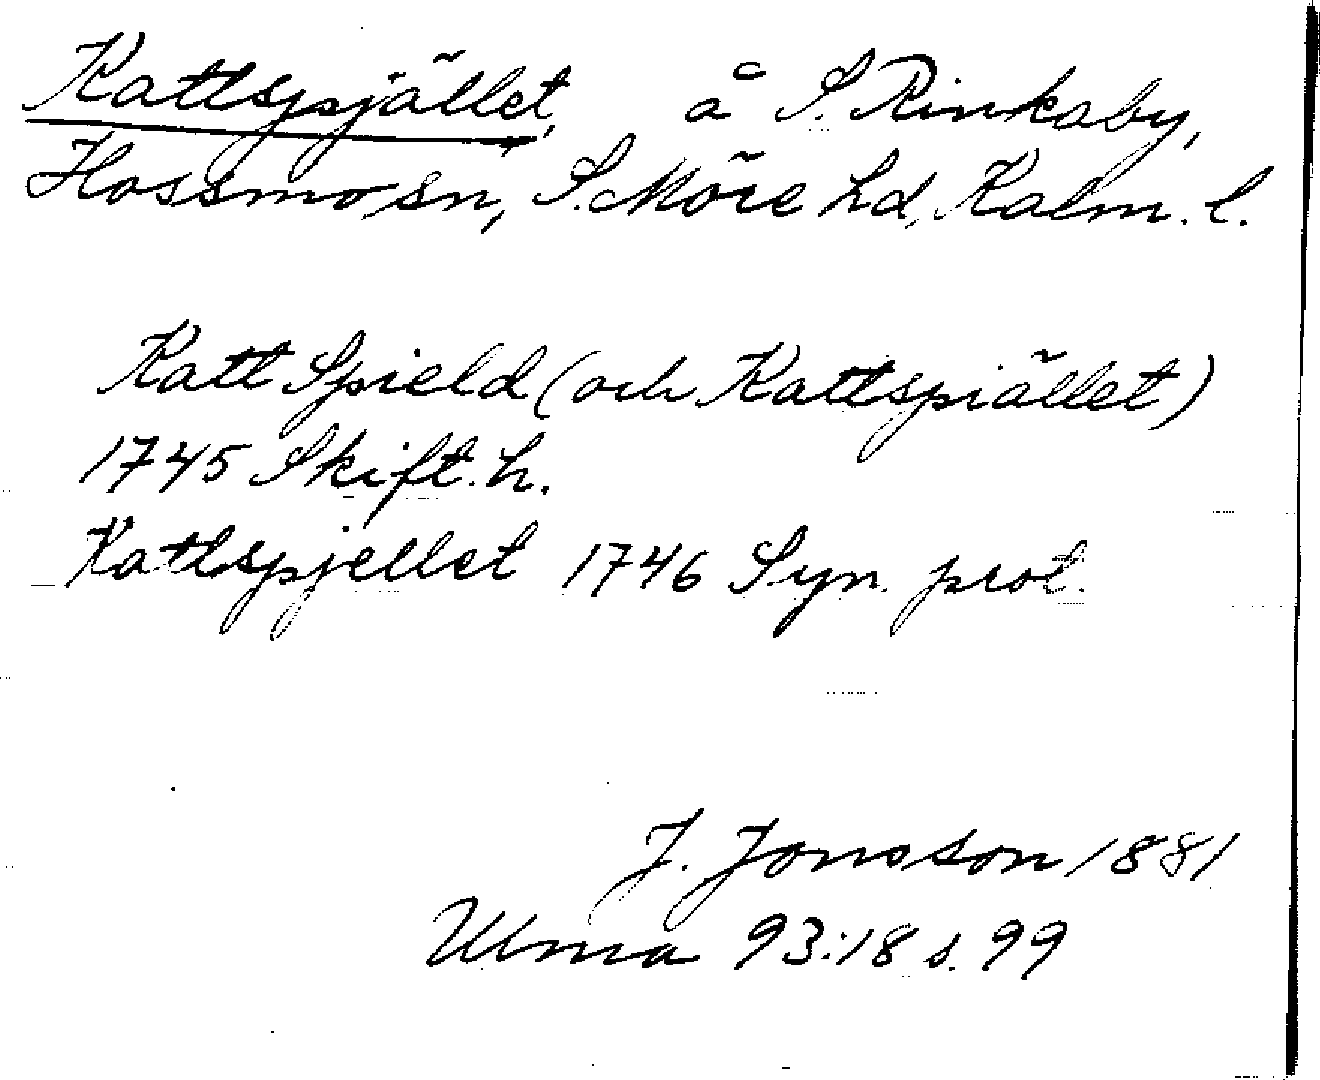 Kattspjället, å S. Rinkaby,
Hossmo sn, S. Möre hd, Kalm. l.
Katt Spield (och Kattspiället)
1745 Skift. h.
Kattspjellet 1746 Syn. prot.
J. Jonsson 1881
Ulma 93:18 s. 99